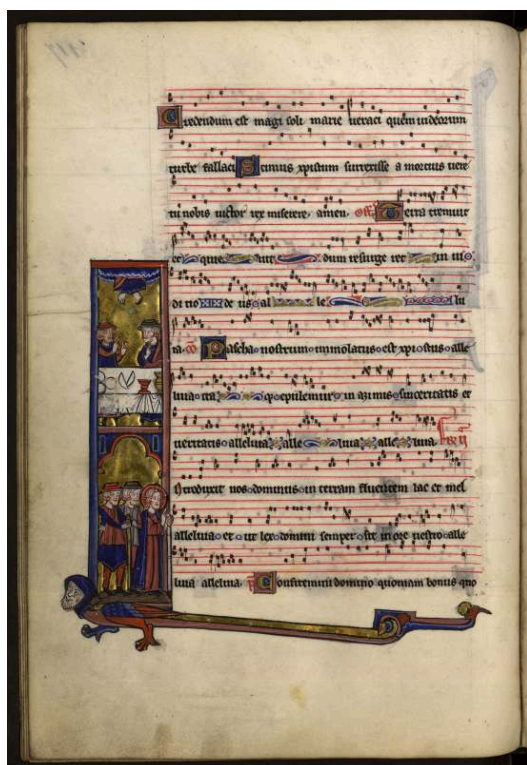 Credendum est magis soli marie ueraci quem iudeorum
turbe fallaci Scimus xpistum surrexisse a mortuis uere
tu nobis uictor rex miserere amen off Terra tremuit
et quie uit dum resurge ret in iu
di cio de us al le lu
ia co Pascha nostrum immolatus est xpistus alle
luia ita q epulemur in azimis sinceritatis et
ueritatis alleluia alle luia alle luia
ntroduxit nos dominus in terram fluentem lac et mel
alleluia et ut lex domini semper sit in ore uestro alle
luia alleluia Confitemini domino quoniam bonus quo